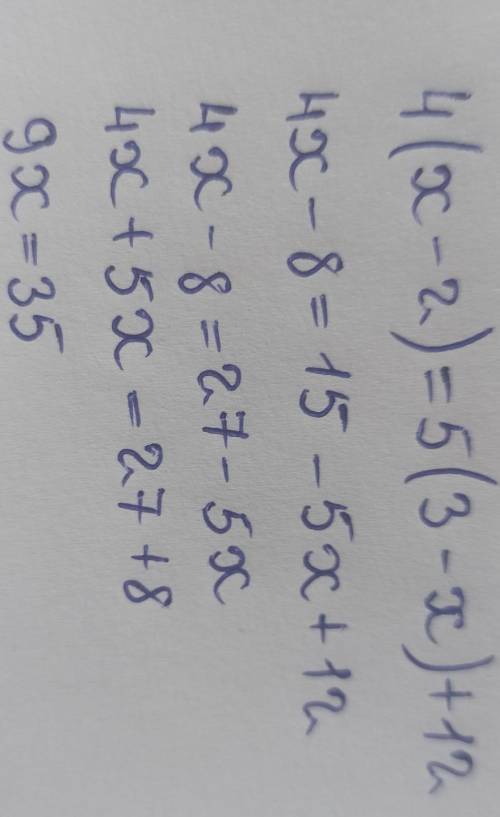 4(x - 2) = 5(3 - x) + 12
4x - 8 = 15 - 5x + 12
4x - 8 = 27 - 5x
4x + 5x = 27 + 8
9x = 35